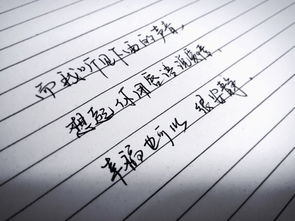 而我听见下雨的声音,
想起你用唇语说爱情,
幸福也可以 很安静